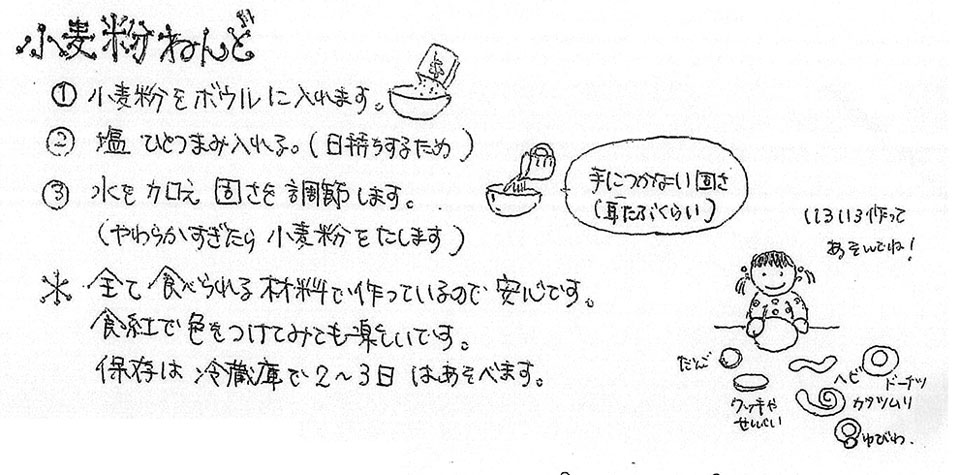 小麦粉ねんど
① 小麦粉をボウルに入れます。
② 塩ひとつまみ入れる。(日持ちするため)
③ 水を加え 固さを調節します。
(やわらかすぎたら 小麦粉をたします)
手につかない固さ
(耳たぶくらい)
※ 全て食べられる材料で作っているので安心です。
食紅で色をつけてみても楽しいです。
保存は 冷蔵庫で2~3日はあそべます。
いろいろ作って
あそんでね!
だんご
ヘビ
ドーナツ
クッキーや
せんべい
カタツムリ
ゆびわ